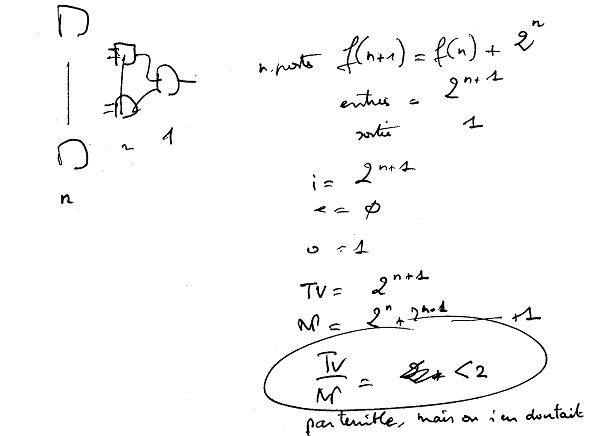 n. ports f(n+1) = f(n) + 2^n
entrées = 2^n+1
sortie 1
n 2 1
i = 2^n+1
e = ø
o = 1
TV = 2^n+1
N = 2^n + 2^n-1 — +1
TV/N = < 2
pas terrible, mais on s'en doutait